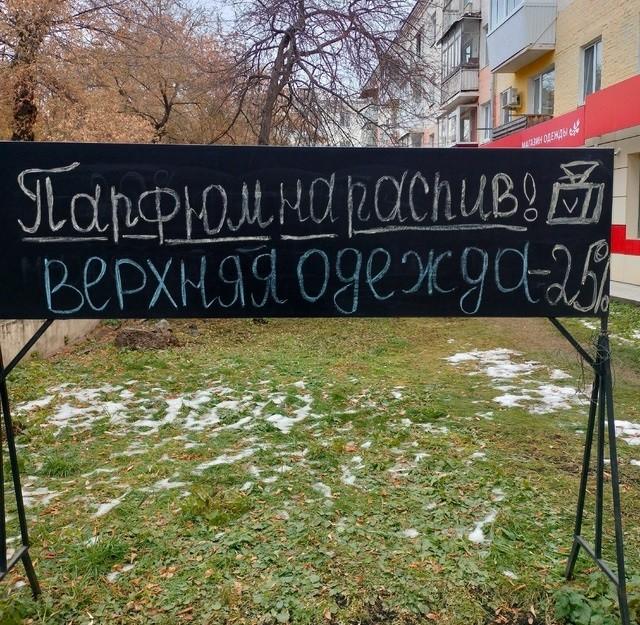 МАГАЗИН ОДЕЖДЫ
Парфюм на распив!
верхняя одежда -25%